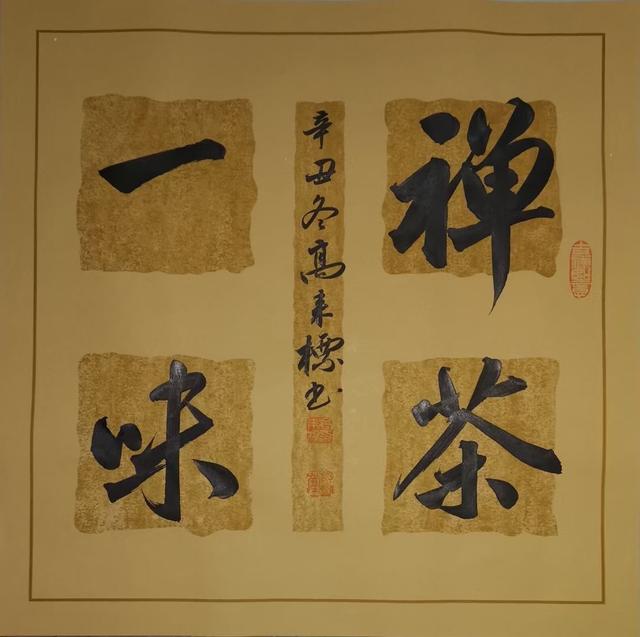 禅茶
一味
辛丑冬高来標书